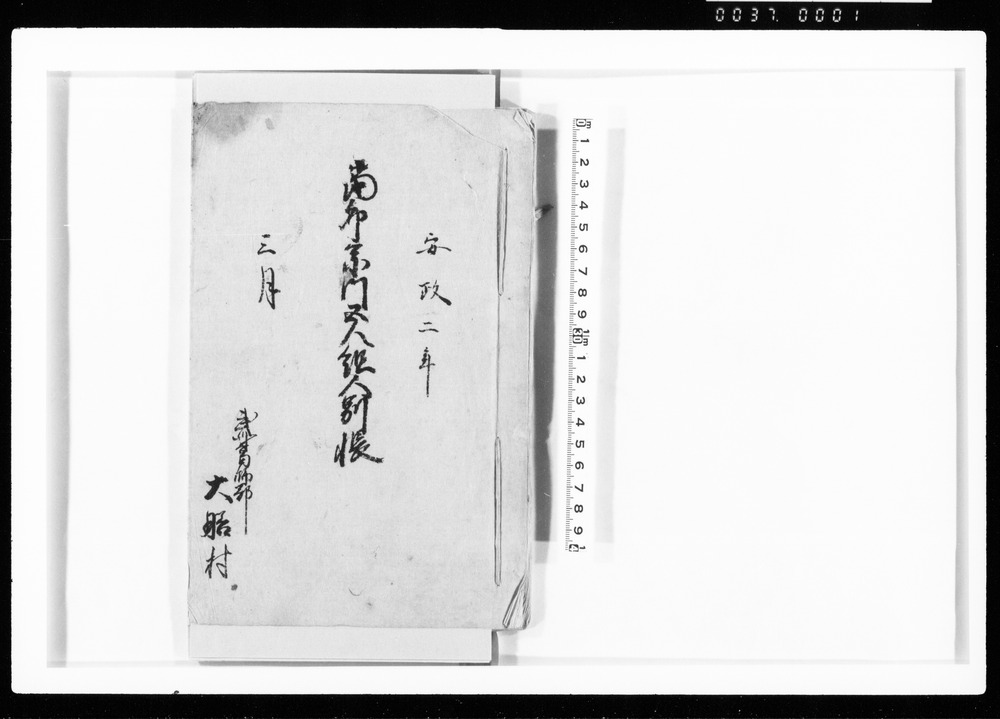 0037. 0001
安政二年
當卯宗門五人組人別帳
三月
武州葛飾郡
大膳村
1 2 3 4 5 6 7 8 9
1 2 3 4 5 6 7 8 9